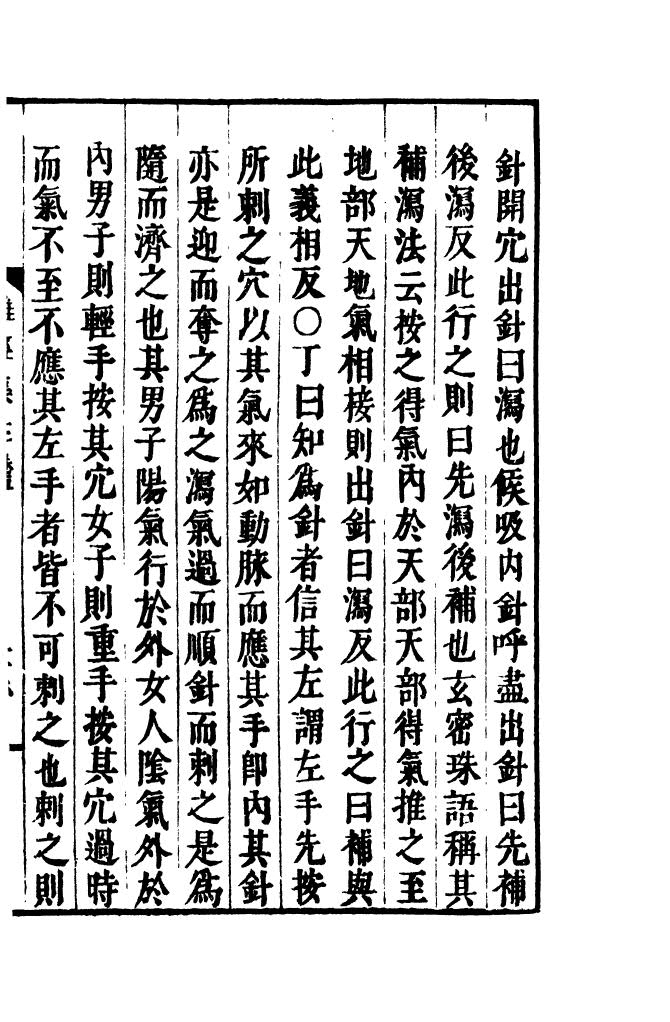 針開穴出針曰瀉也候吸内針呼盡出針曰先補
後瀉反此行之則曰先瀉後補也玄密珠語稱其
補瀉法云按之得氣内於天部天部得氣推之至
地部天地氣相接則出針曰瀉反此行之曰補與
此義相反〇丁曰知爲針者信其左謂左手先按
所刺之穴以其氣來如動脉而應其手卽内其針
亦是迎而奪之爲之瀉氣過而順針而刺之是爲
隨而濟之也其男子陽氣行於外女人陰氣外於
内男子則輕手按其穴女子則重手按其穴過時
而氣不至不應其左手者皆不可刺之也刺之則